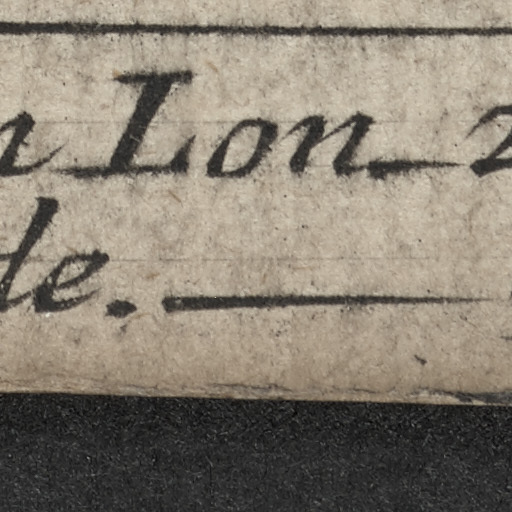 n Lon_2
de.